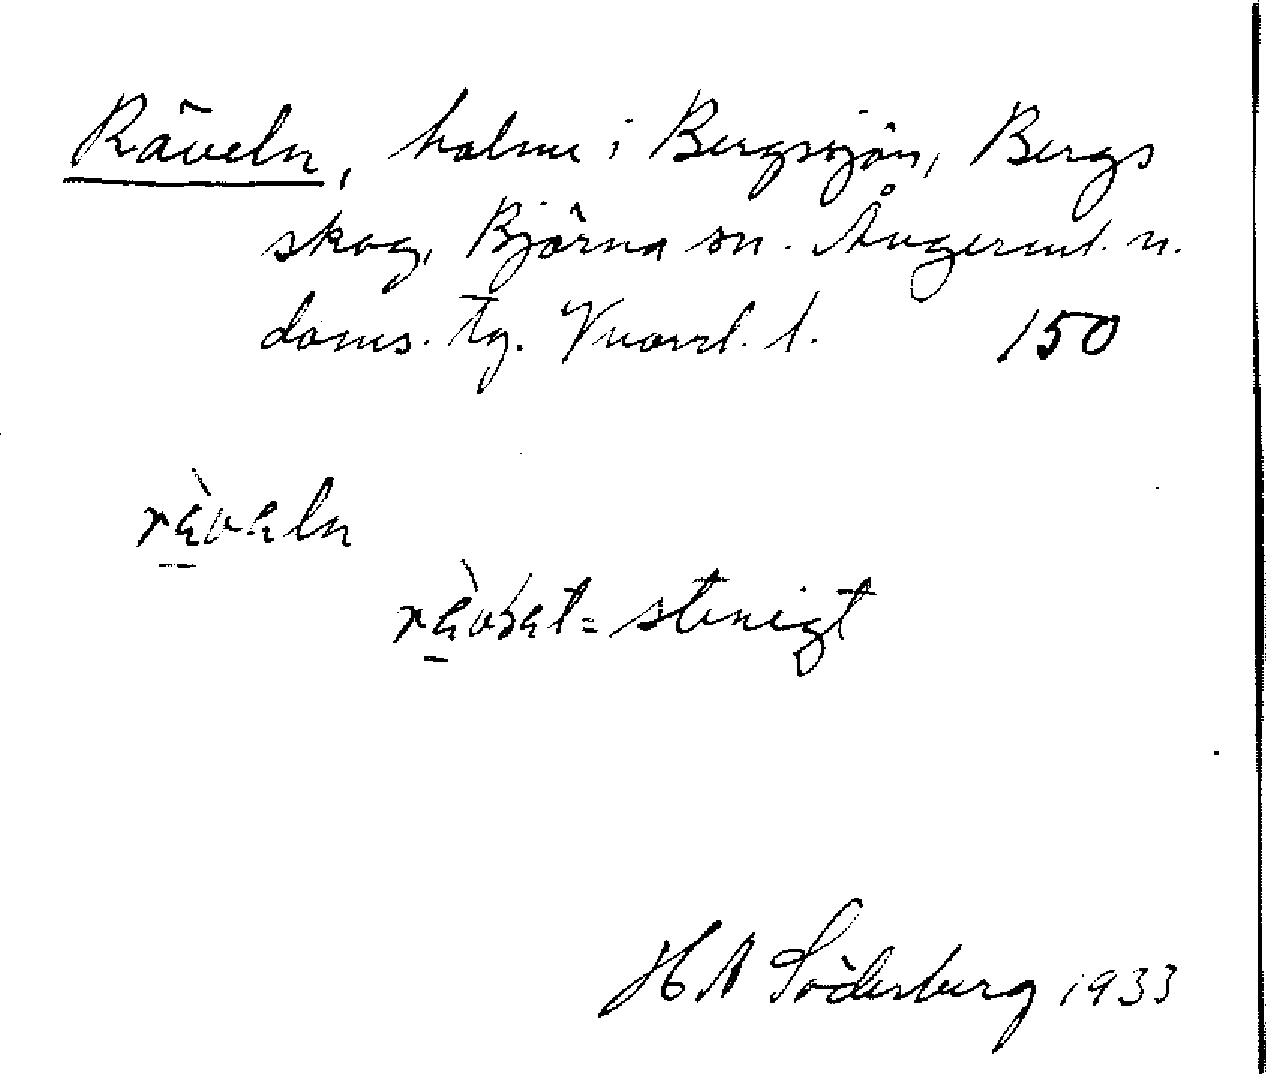 Räveln, holme i Bergsjön, Bergs
skog, Björna sn. Ångerml. n.
doms. tg. Vnorrl. l. 150
rävaln
= stenigt
H A Söderberg 1933